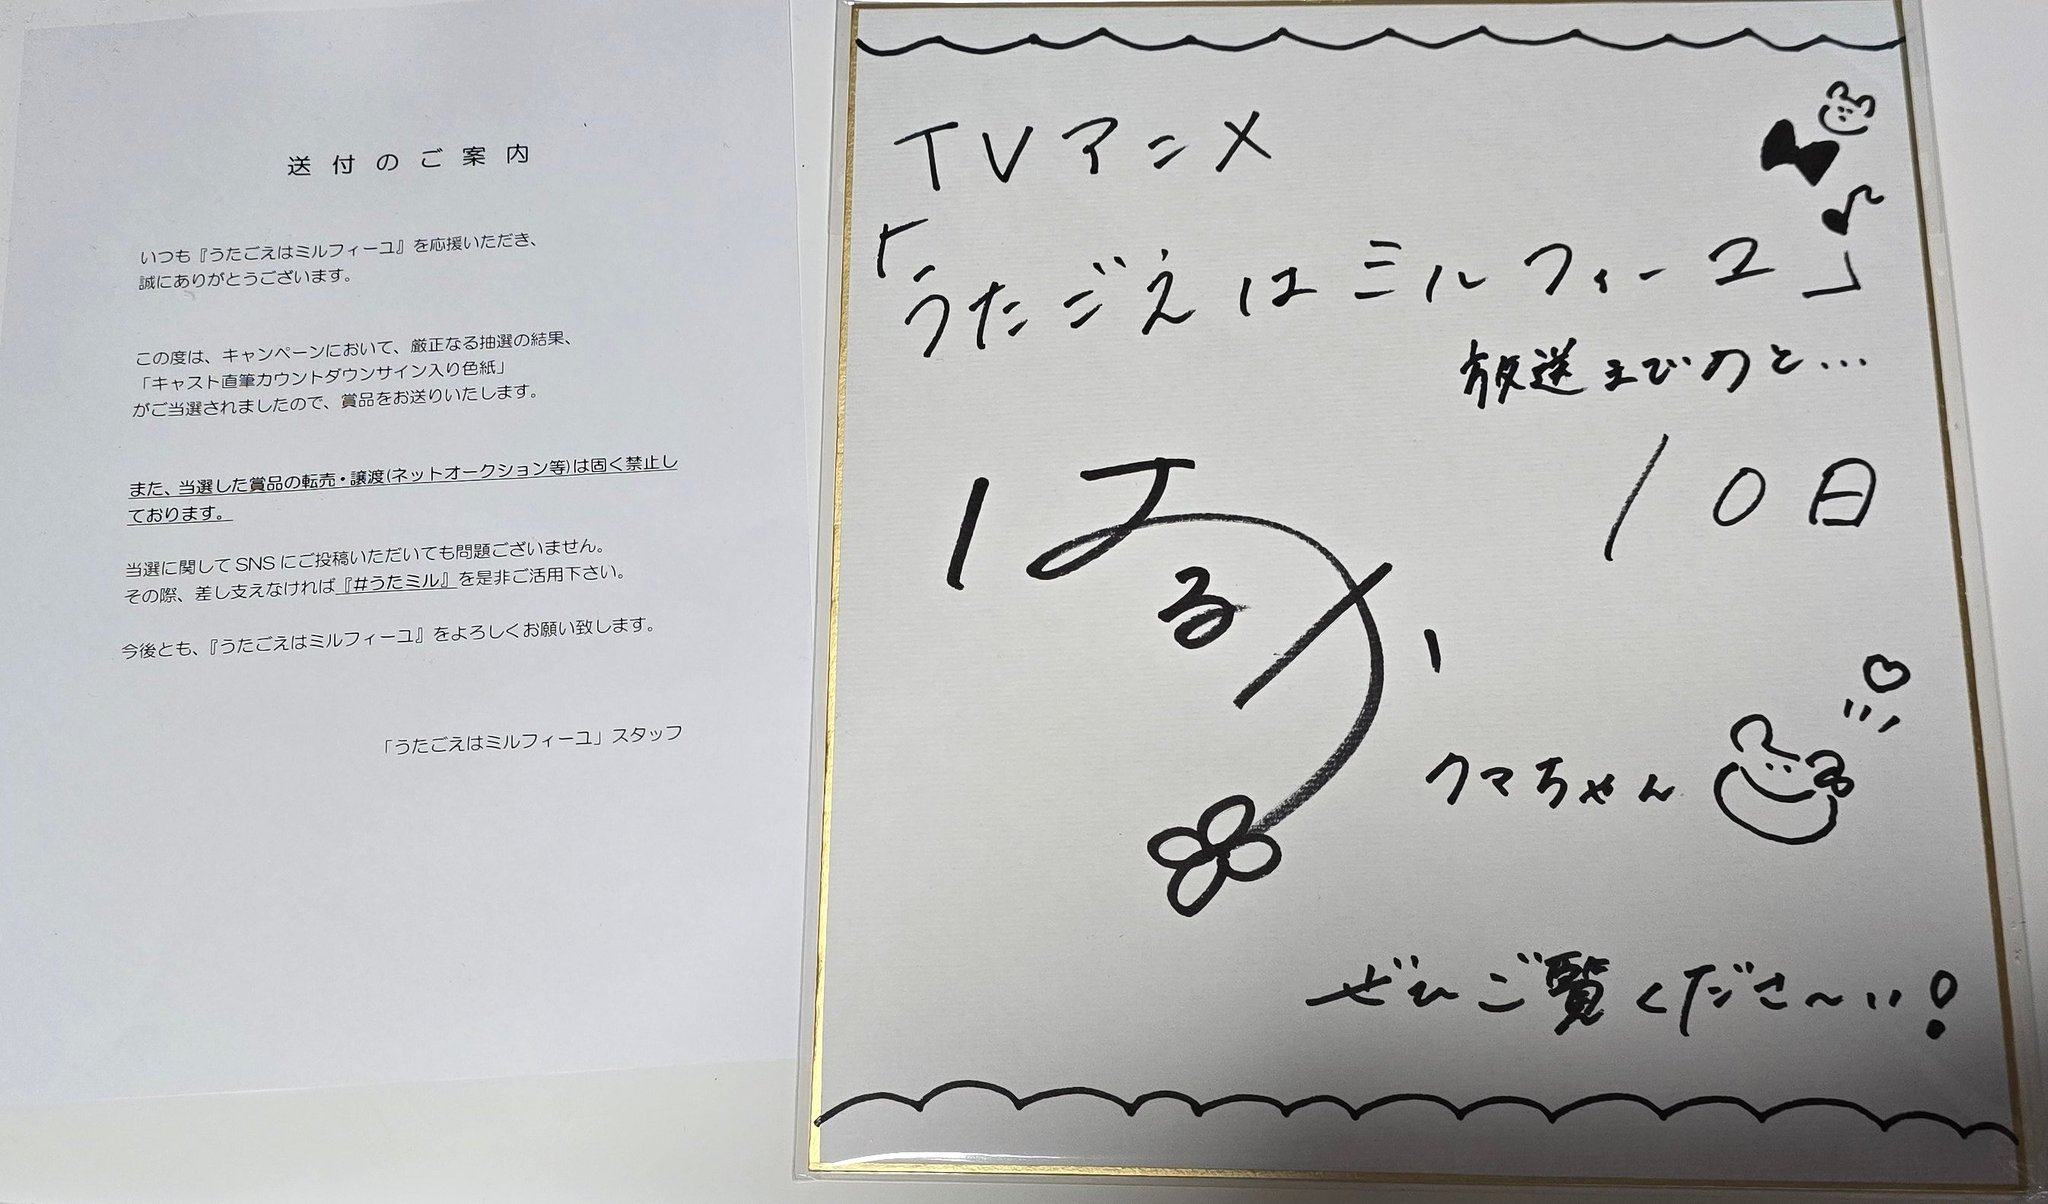 送付のご案内
いつも『うたごえはミルフィーユ』を応援いただき、
誠にありがとうございます。
この度は、キャンペーンにおいて、厳正なる抽選の結果、
「キャスト直筆カウントダウンサイン入り色紙」
がご当選されましたので、賞品をお送りいたします。
また、当選した賞品の転売・譲渡(ネットオークション等)は固く禁止し
ております。
当選に関してSNSにご投稿いただいても問題ございません。
その際、差し支えなければ『#うたミル』を是非ご活用下さい。
今後とも、『うたごえはミルフィーユ』をよろしくお願い致します。
「うたごえはミルフィーユ」スタッフ
TVアニメ
「うたごえはミルフィーユ」
放送まであと…
10日
クマちゃん
ぜひご覧くださ〜い!